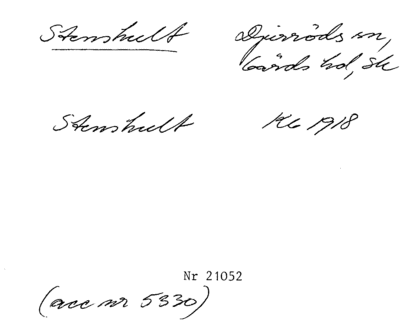 Stenshult Djurröds sn,
Gärds hd, Sk
Stenshult Kb 1918
Nr 21052
(acc nr 5330)